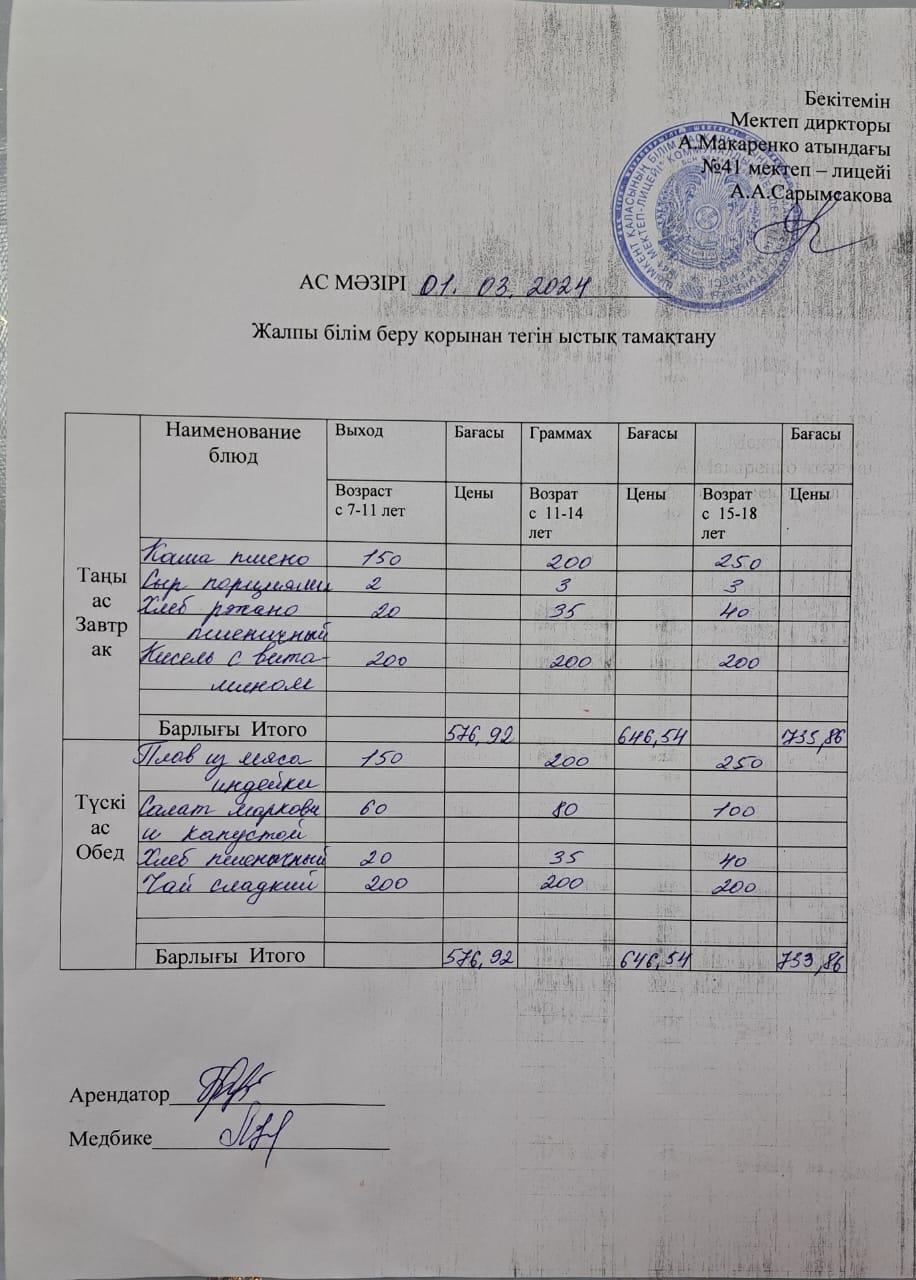 Бекітемін
Мектеп диркторы
А.Макаренко атындағы
№41 мектеп – лицейі
А.А.Сарымсакова
АС МӘЗІРІ 01. 03. 2024
Жалпы білім беру қорынан тегін ыстық тамақтану
Наименование блюд Выход Бағасы Граммах Бағасы Бағасы
Возраст с 7-11 лет Цены Возрат с 11-14 лет Цены Возрат с 15-18 лет Цены
Таңы ас Завтр ак
Каша пшено 150 200 250
Сыр порциями 2 3 3
Хлеб ржано 20 35 40
пшеничный
Кисель с вита- 200 200 200
мином
Барлығы Итого 576,92 646,54 735,86
Түскі ас Обед
Плов из мяса 150 200 250
индейки
Салат маркови 60 80 100
и капустой
Хлеб пшеничный 20 35 40
Чай сладкий 200 200 200
Барлығы Итого 576,92 646,54 733,86
Арендатор
Медбике